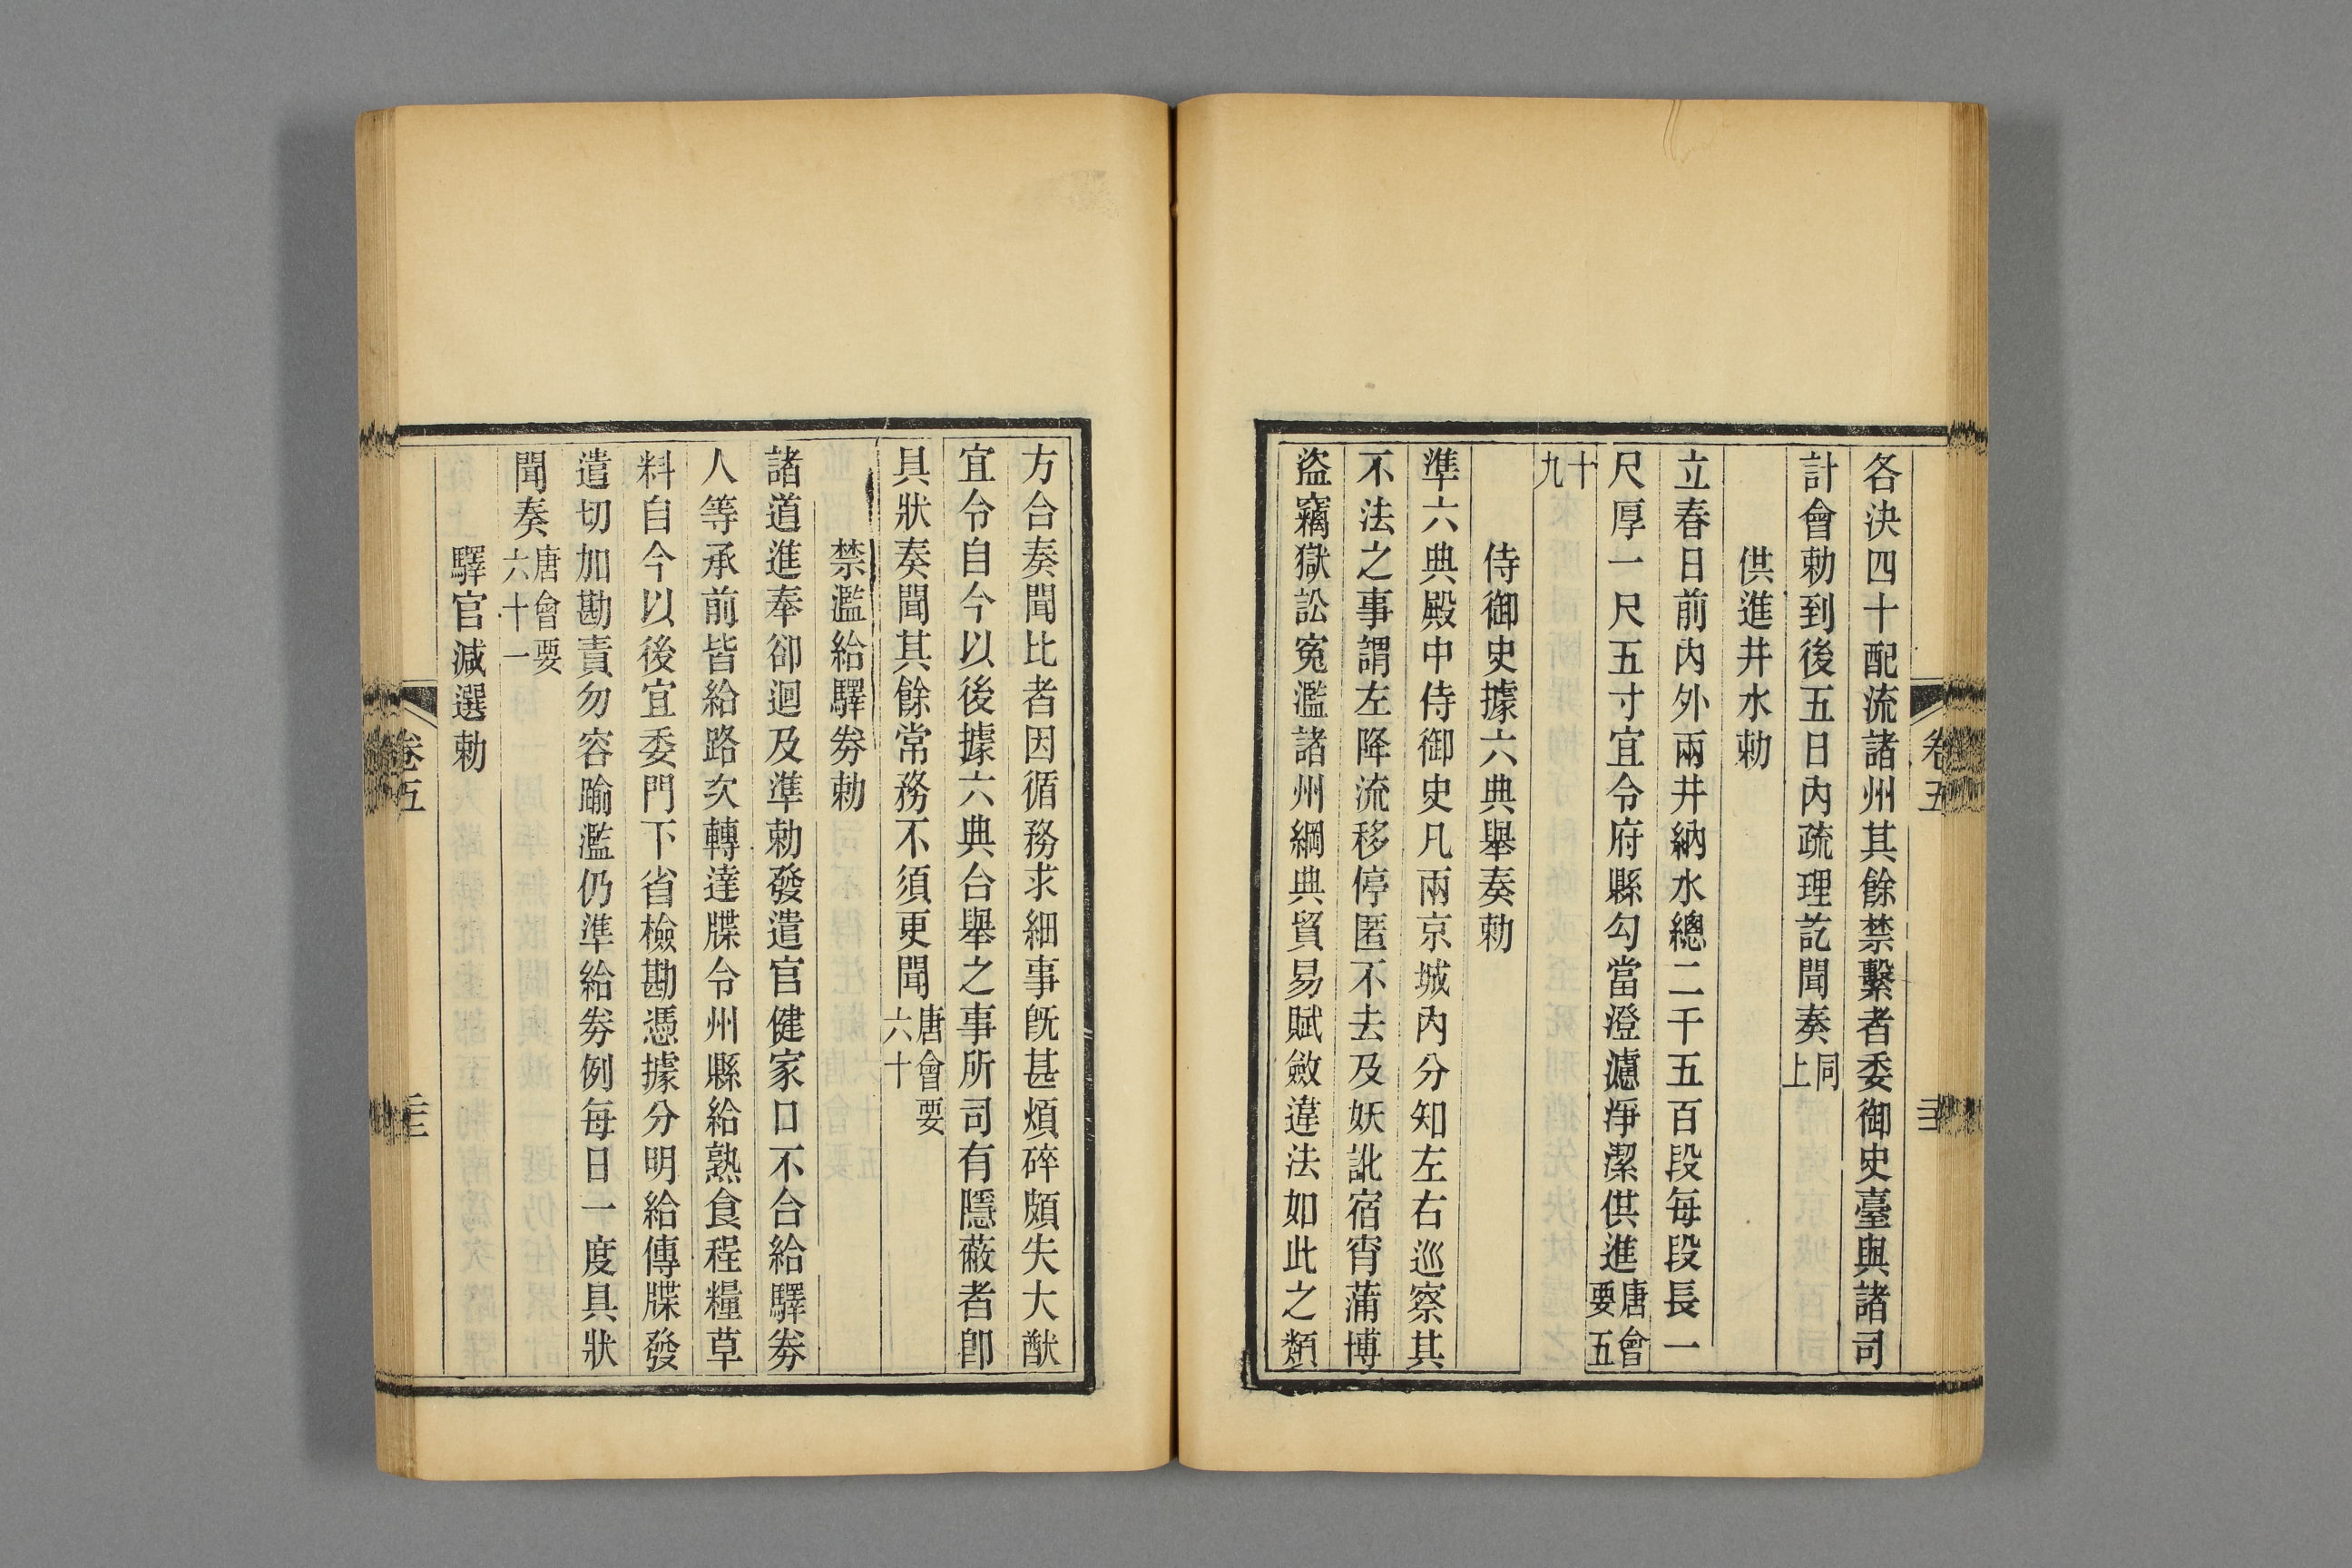 各決四十配流諸州其餘禁繫者委御史臺與諸司
計會勅到後五日內疏理訖聞奏同上
供進井水勅
立春日前內外兩井納水總二千五百段每段長一
尺厚一尺五寸宜令府縣勾當澄濾淨潔供進唐會要五
十九
侍御史據六典舉奏勅
準六典殿中侍御史凡兩京城內分知左右巡察其
不法之事謂左降流移停匿不去及妖訛宿宵蒲博
盜竊獄訟寃濫諸州綱典貿易賦斂違法如此之類
方合奏聞比者因循務求細事旣甚煩碎頗失大猷
宜令自今以後據六典合舉之事所司有隱蔽者卽
具狀奏聞其餘常務不須更聞唐會要六十
禁濫給驛劵勅
諸道進奉卻迴及準勅發遣官健家口不合給驛劵
人等承前皆給路次轉達牒令州縣給熟食程糧草
料自今以後宜委門下省檢勘憑據分明給傳牒發
遣切加勘責勿容踰濫仍準給劵例每日一度具狀
聞奏唐會要六十一
驛官減選勅
卷五
卷五